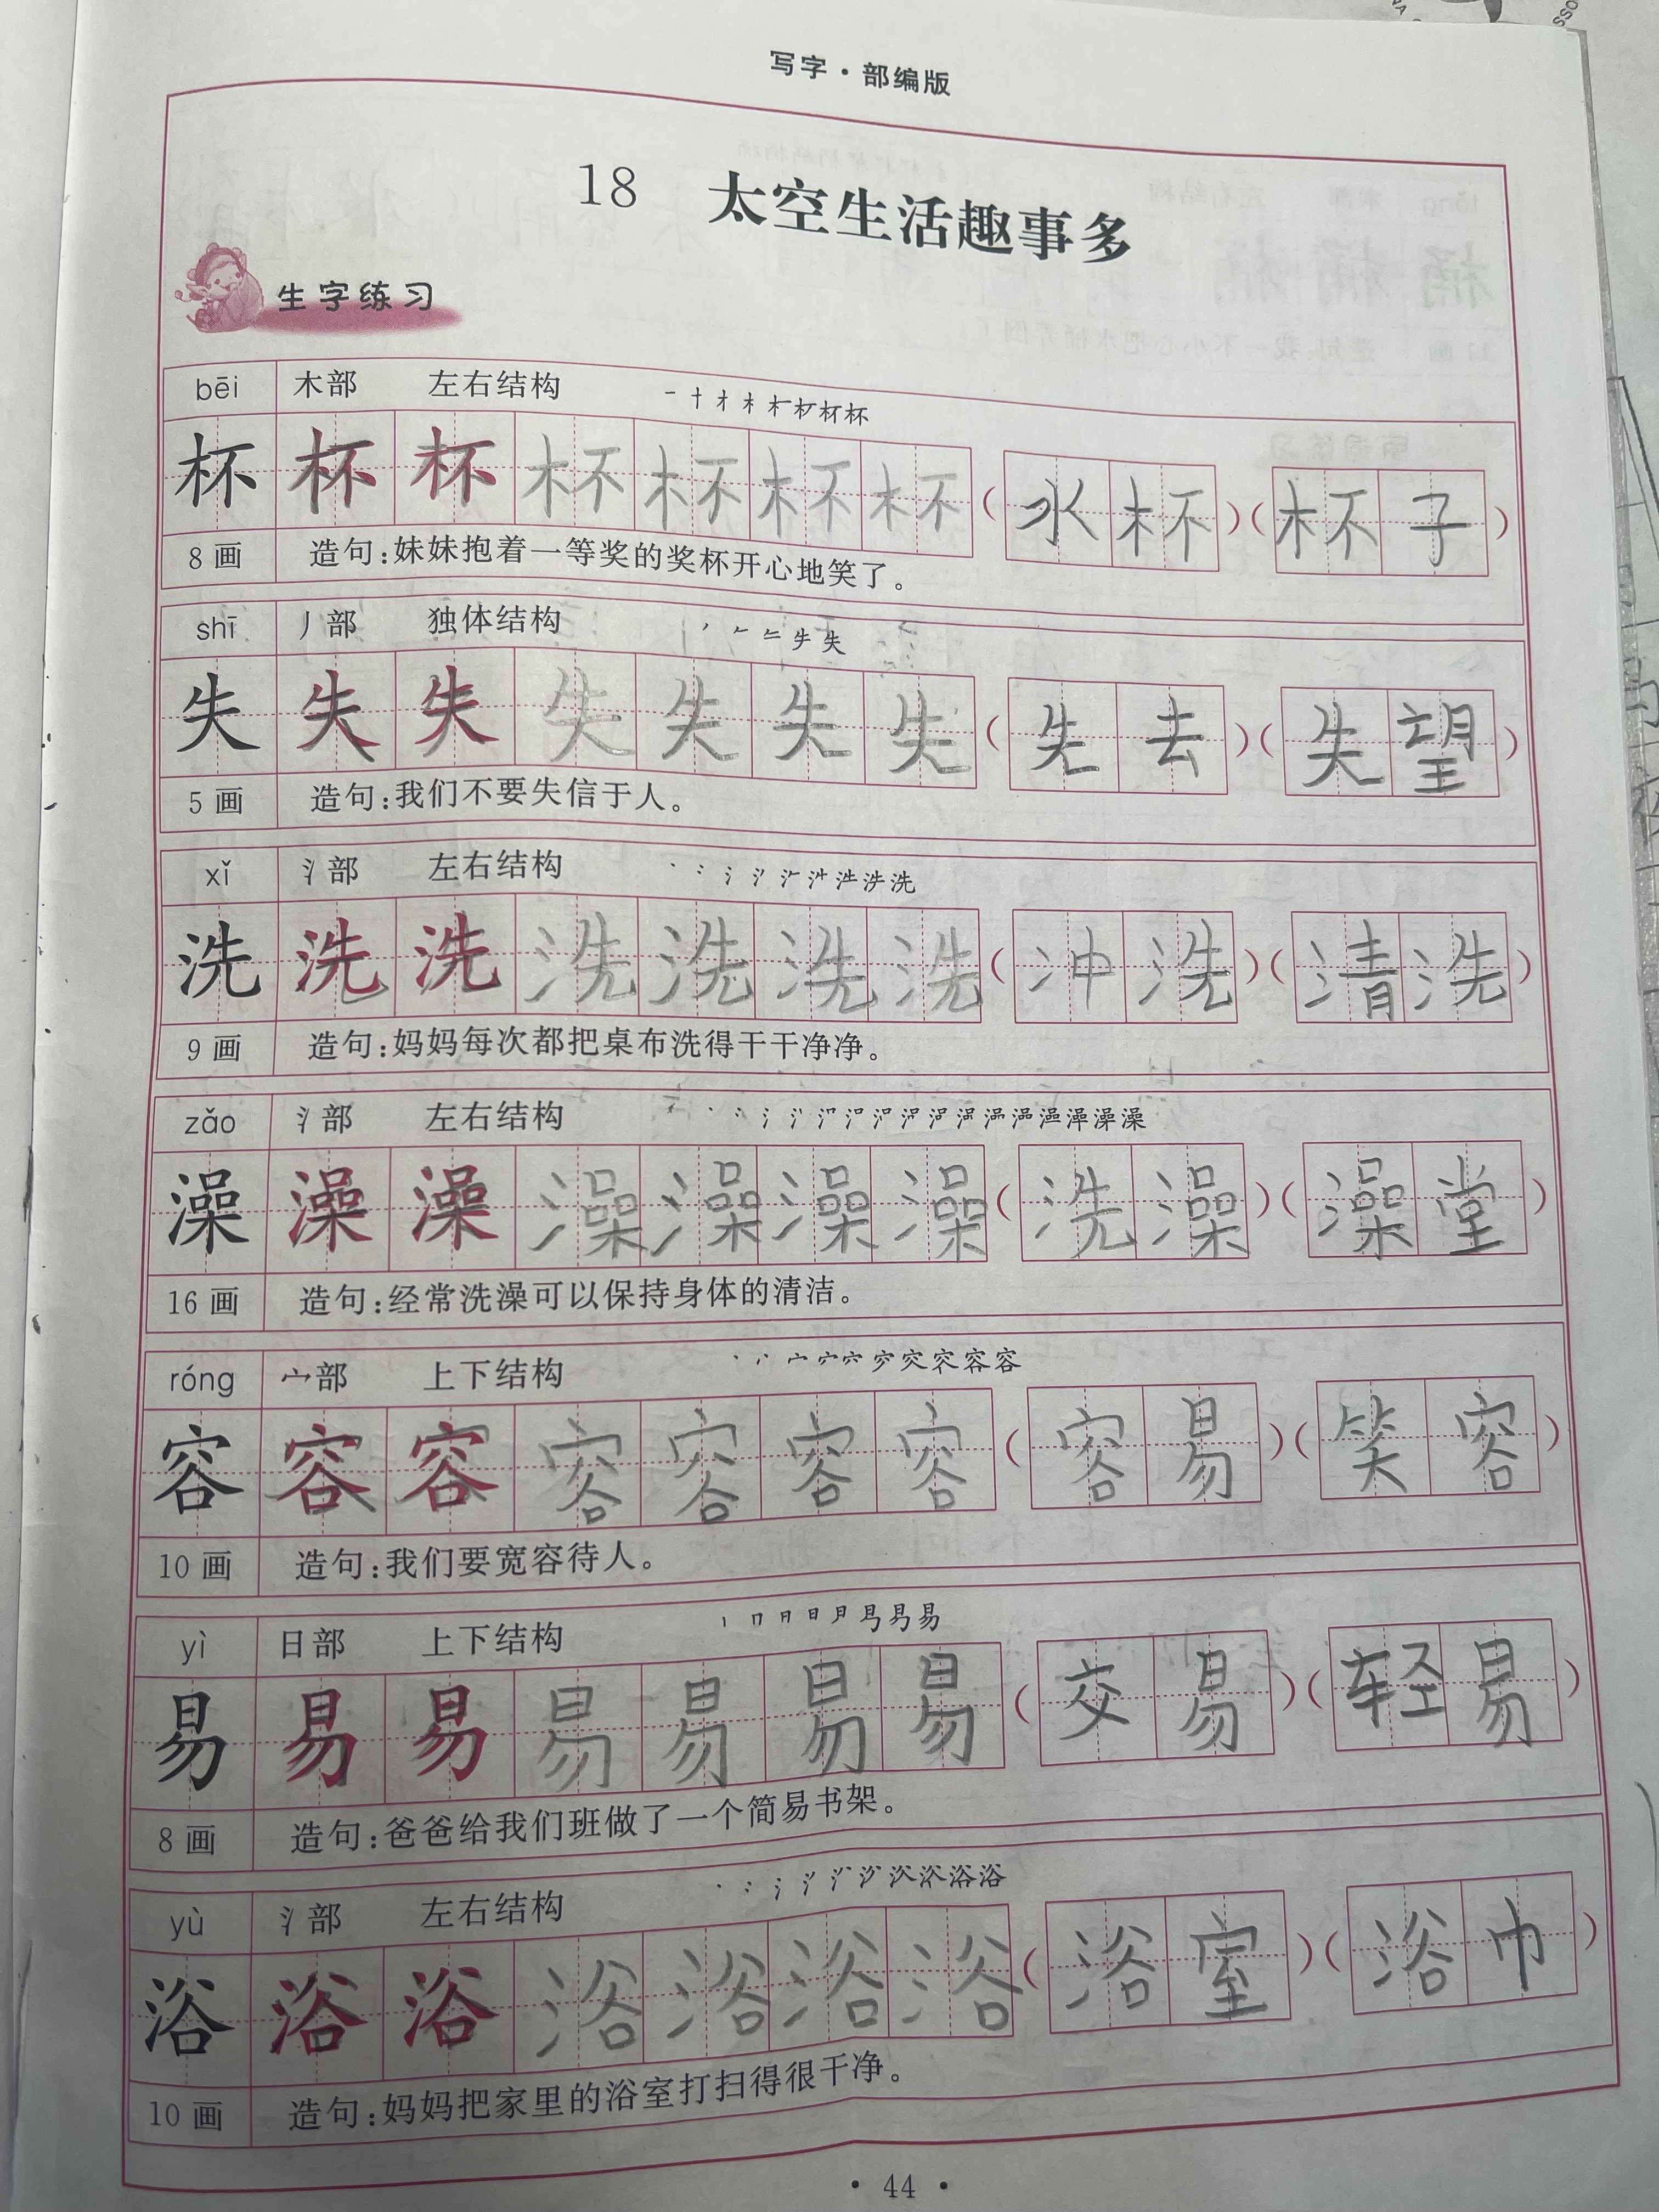 写字·部编版
18 太空生活趣事多
生字练习
bēi 木部 左右结构 一十才木杧杯杯杯
杯 杯 杯 杯 杯 杯 杯 (水杯)(杯子)
8画 造句:妹妹抱着一等奖的奖杯开心地笑了。
shī 丿部 独体结构
失 失 失 失 失 失 失 (失去)(失望)
5画 造句:我们不要失信于人。
xǐ 氵部 左右结构
洗 洗 洗 洗 洗 洗 洗 (冲洗)(清洗)
9画 造句:妈妈每次都把桌布洗得干干净净。
zǎo 氵部 左右结构
澡 澡 澡 澡 澡 澡 澡 (洗澡)(澡堂)
16画 造句:经常洗澡可以保持身体的清洁。
róng 宀部 上下结构
容 容 容 容 容 容 容 (容易)(笑容)
10画 造句:我们要宽容待人。
yì 日部 上下结构
易 易 易 易 易 易 易 (交易)(轻易)
8画 造句:爸爸给我们班做了一个简易书架。
yù 氵部 左右结构
浴 浴 浴 浴 浴 浴 浴 (浴室)(浴巾)
10画 造句:妈妈把家里的浴室打扫得很干净。
·44·